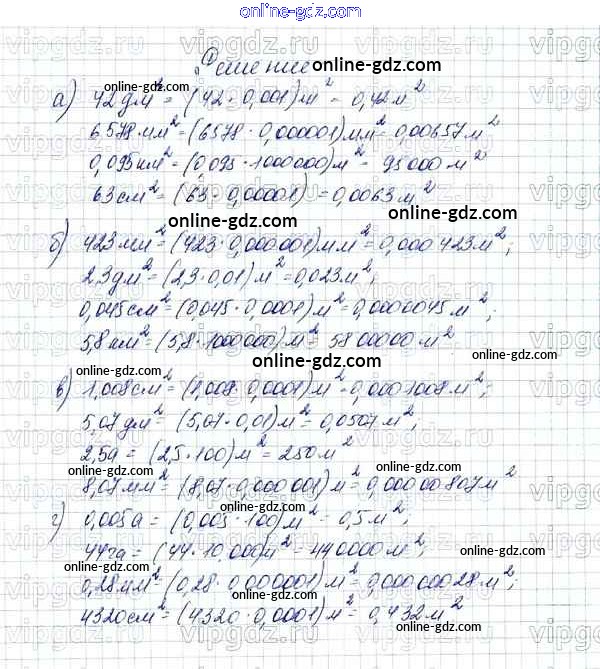 online-gdz.com
Решение online-gdz.com
online-gdz.com
а) 42дм² = (42·0,001)м² = 0,42м²
6578мм² = (6578·0,000001)мм² = 0,00657м²
0,095км² = (0,095·1000000)м² = 95000м²
63см² = (63·0,00001) = 0,0063м²
online-gdz.com
online-gdz.com
б) 423мм² = (423·0,000001)мм² = 0,000423м²;
2,3дм² = (2,3·0,01)м² = 0,023м²;
0,045см² = (0,045·0,0001)м² = 0,0000045м²;
5,8км² = (5,8·1000000)м² = 5800000м²
online-gdz.com
online-gdz.com
в) 1,008см² = (1,008·0,0001)м² = 0,0001008м²;
5,07дм² = (5,07·0,01)м² = 0,0507м²;
2,5а = (2,5·100)м² = 250м²
online-gdz.com
online-gdz.com
8,07мм² = (8,07·0,000001)м² = 0,00000807м²
online-gdz.com
г) 0,005а = (0,005·100)м² = 0,5м²;
44га = (44·10.000)м² = 440000м²;
online-gdz.com
online-gdz.com
0,28мм² = (0,28·0,000001)м² = 0,00000028м²;
4320см² = (4320·0,0001)м² = 0,432м²
online-gdz.com